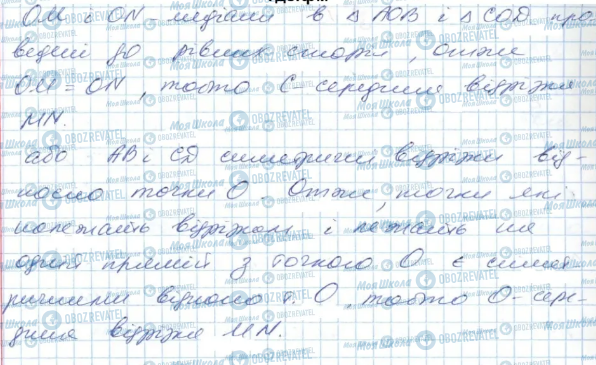 OM і ON - медіани в △ AOB і △ COD про-
ведені до рівних сторін, отже
OM = ON, тобто C - середина відрізка
MN.
або AB і CD симетричні відрізки від-
носно точки O. Отже, точки які
належать відрізкам і лежать на
одній прямій з точкою O є симет
ричними відносно т. O, тобто O - сере-
дина відрізка MN.